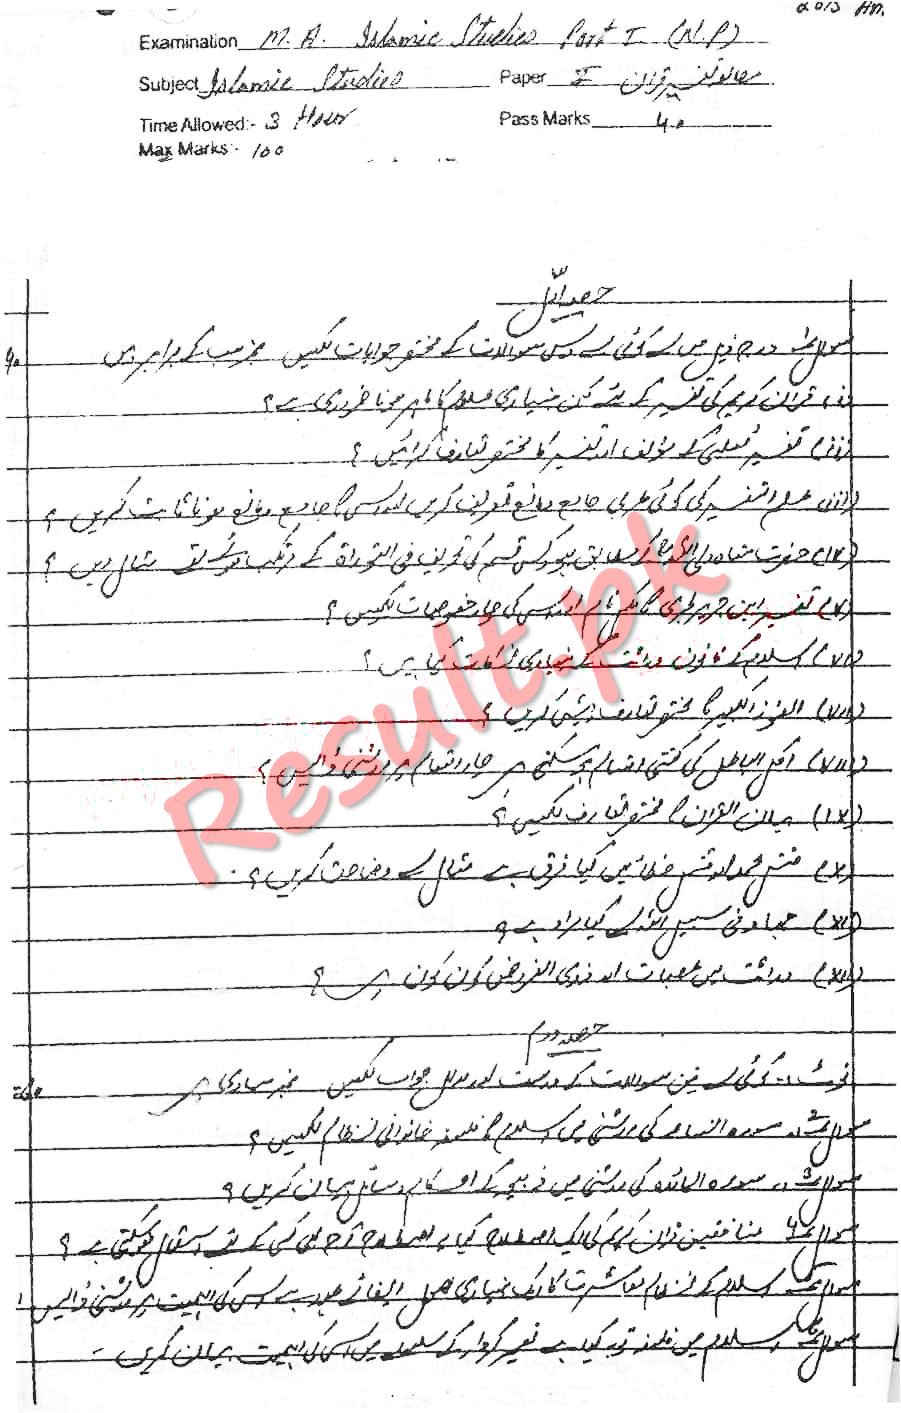 2013 An.
Examination M.A. Islamic Studies Part I (N.P)
Subject Islamic Studies Paper II مطالعہ تفسیر قرآن
Time Allowed:- 3 Hour Pass Marks 40
Max Marks:- 100
حصہ اول
سوال نمبر 1 درج ذیل میں سے کوئی سے دس سوالات کے مختصر جوابات لکھیں نمبر سب کے برابر ہیں 40
(i) قرآن کریم کی تفسیر کے لئے کن بنیادی علوم کا ماہر ہونا ضروری ہے؟
(ii) تفسیر ثعلبی کے مؤلف اور تفسیر کا مختصر تعارف کرائیں ؟
(iii) علم التفسیر کی کوئی عربی جامع و مانع تعریف کریں اور اس کا جامع و مانع ہونا ثابت کریں ؟
(iv) حضرت شاہ ولی اللہ کے مطابق یہود کس قسم کی تحریف فی التوراۃ کے مرتکب ہوئے تھے مثال دیں ؟
(v) تفسیر ابن جریر طبری کا مکمل نام اور اس کی چار خصوصیات لکھیں ؟
(vi) اسلام کے قانون وراثت کے بنیادی نکات کیا ہیں ؟
(vii) الفوز الکبیر کا مختصر تعارف پیش کریں ؟
(viii) اکل الباطل کی کتنی اقسام ہو سکتی ہیں چار اقسام پر روشنی ڈالیں ؟
(ix) بیان القرآن کا مختصر تعارف لکھیں ؟
(x) قتل عمد اور قتل خطا میں کیا فرق ہے مثال سے وضاحت کریں ؟
(xi) جہاد فی سبیل اللہ سے کیا مراد ہے ؟
(xii) وراثت میں عصبات اور ذوی الفروض کون کون ہیں ؟
حصہ دوم
نوٹ:- کوئی سے تین سوالات کے درست اور مدلل جواب لکھیں نمبر مساوی ہیں 60
سوال نمبر 2 سورہ النساء کی روشنی میں اسلام کا فلسفہ خاندانی نظام لکھیں ؟
سوال نمبر 3 سورہ المائدہ کی روشنی میں ذبیحہ کے احکام و مسائل بیان کریں ؟
سوال نمبر 4 منافقین قرآن کریم کی ایک اصطلاح کیا یہ اصطلاح آج بھی کسی کے لئے استعمال ہو سکتی ہے ؟
سوال نمبر 5 اسلام کے نظام معاشرت کا ایک بنیادی اصول ایفائے عہد ہے اس کی اہمیت پر روشنی ڈالیں
سوال نمبر 6 اسلام میں فلسفہ توبہ کیا ہے تعمیر کردار کے سلسلے میں اس کی اہمیت بیان کریں ۔
Result.pk